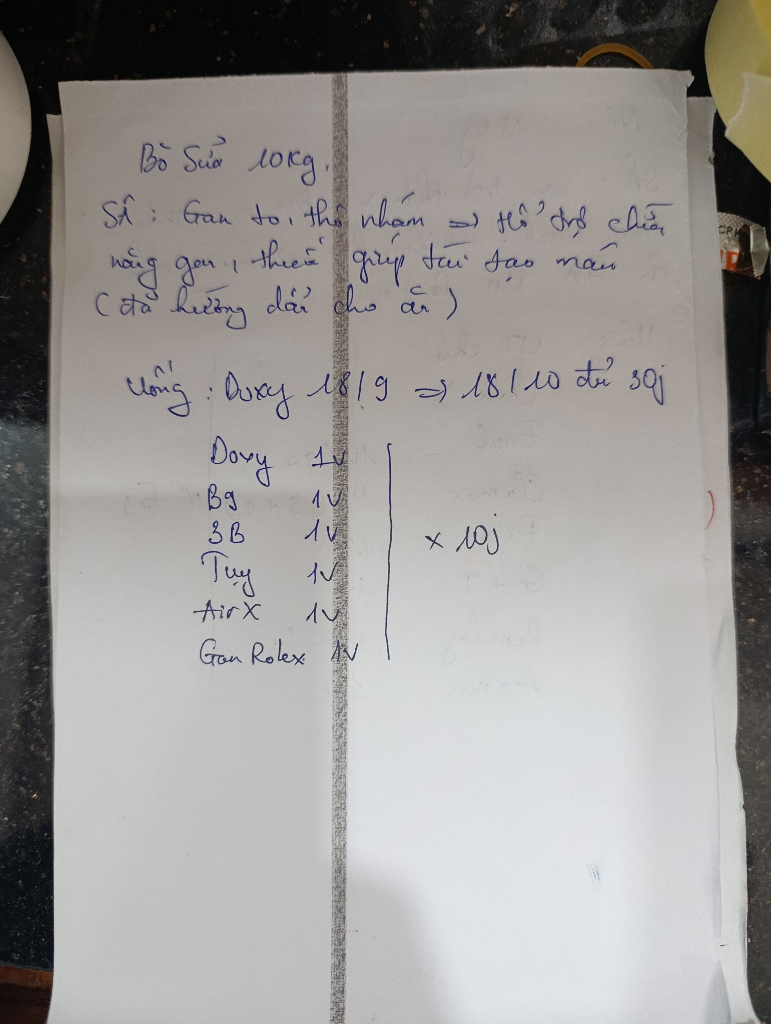 Bò Sữa 10kg.
SÂ: Gan to, thô nhám => Hỗ trợ chức
năng gan, thuốc giúp tái tạo máu
(đã hướng dẫn cho ăn)
Uống: Doxy 18/9 => 18/10 đủ 30j
Doxy 1v
B9 1v
3B 1v x 10j
Tụy 1v
AirX 1v
Gan Rolex 1v